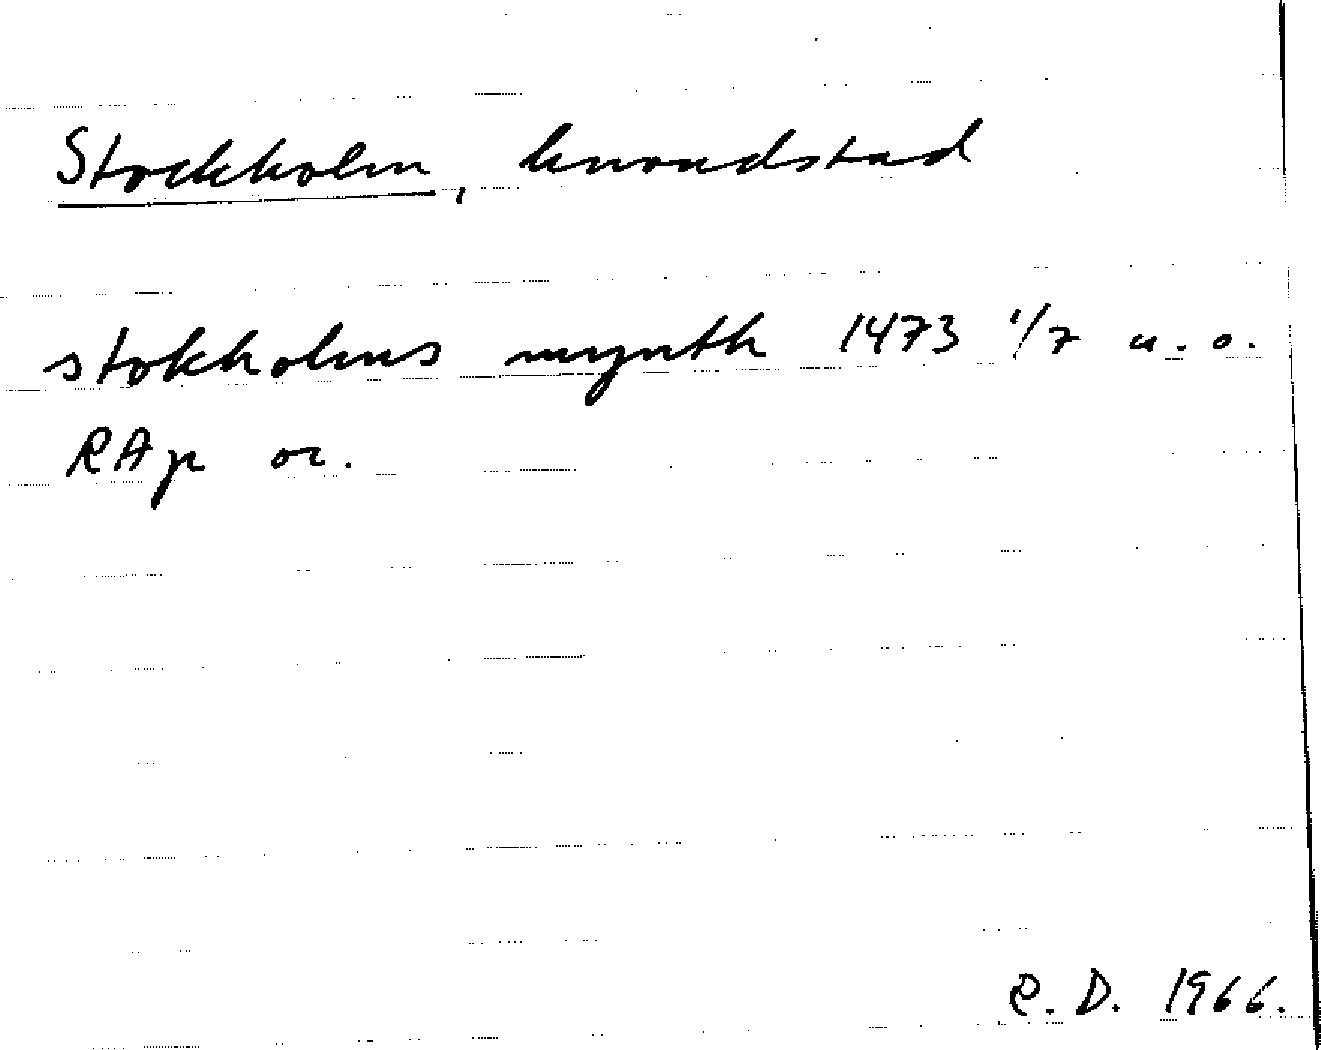 Stockholm, huvudstad
stokholms mynth 1473 1/7 u. o.
RAp or.
R. D. 1966.